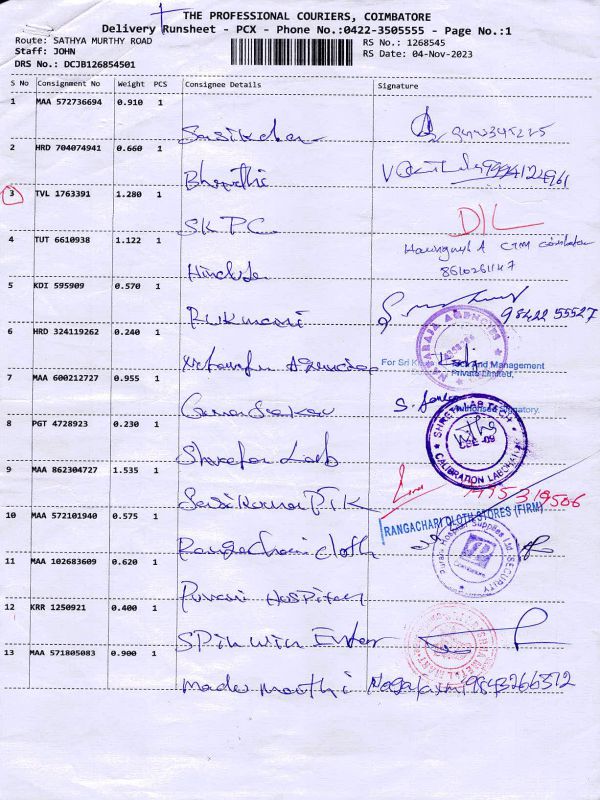 THE PROFESSIONAL COURIERS, COIMBATORE
Delivery Runsheet - PCX - Phone No.:0422-3505555 - Page No.:1
Route: SATHYA MURTHY ROAD
RS No.: 1268545
Staff: JOHN
RS Date: 04-Nov-2023
DRS No.: DCJB126854501
S No Consignment No Weight PCS Consignee Details Signature
1 MAA 572736694 0.910 1
2 HRD 704074941 0.660 1
Bharathi
3 TVL 1763391 1.280 1
SKPC
D/L
4 TUT 6610938 1.122 1
8610261147
5 KDI 595909 0.570 1
Rukmani
98422 55527
6 HRD 324119262 0.240 1
Agencies
MAHARAJA AGENCIES
For Sri and Management
Private Limited,
7 MAA 600212727 0.955 1
Authorised Signatory.
8 PGT 4728923 0.230 1
Lab
SHREE LAB TECH
CBE-09
CALIBRATION LABORATORY
9 MAA 862304727 1.535 1
Sasikumar PTK
10 MAA 572101940 0.575 1
Rangachari Cloth
RANGACHARI CLOTH STORES (FIRM)
11 MAA 102683609 0.620 1
Purani Hospital
Purani Hospital Supplies Ltd
SECURITY
Coimbatore
12 KRR 1250921 0.400 1
Spin Win Enter
13 MAA 571805083 0.900 1
9843266312